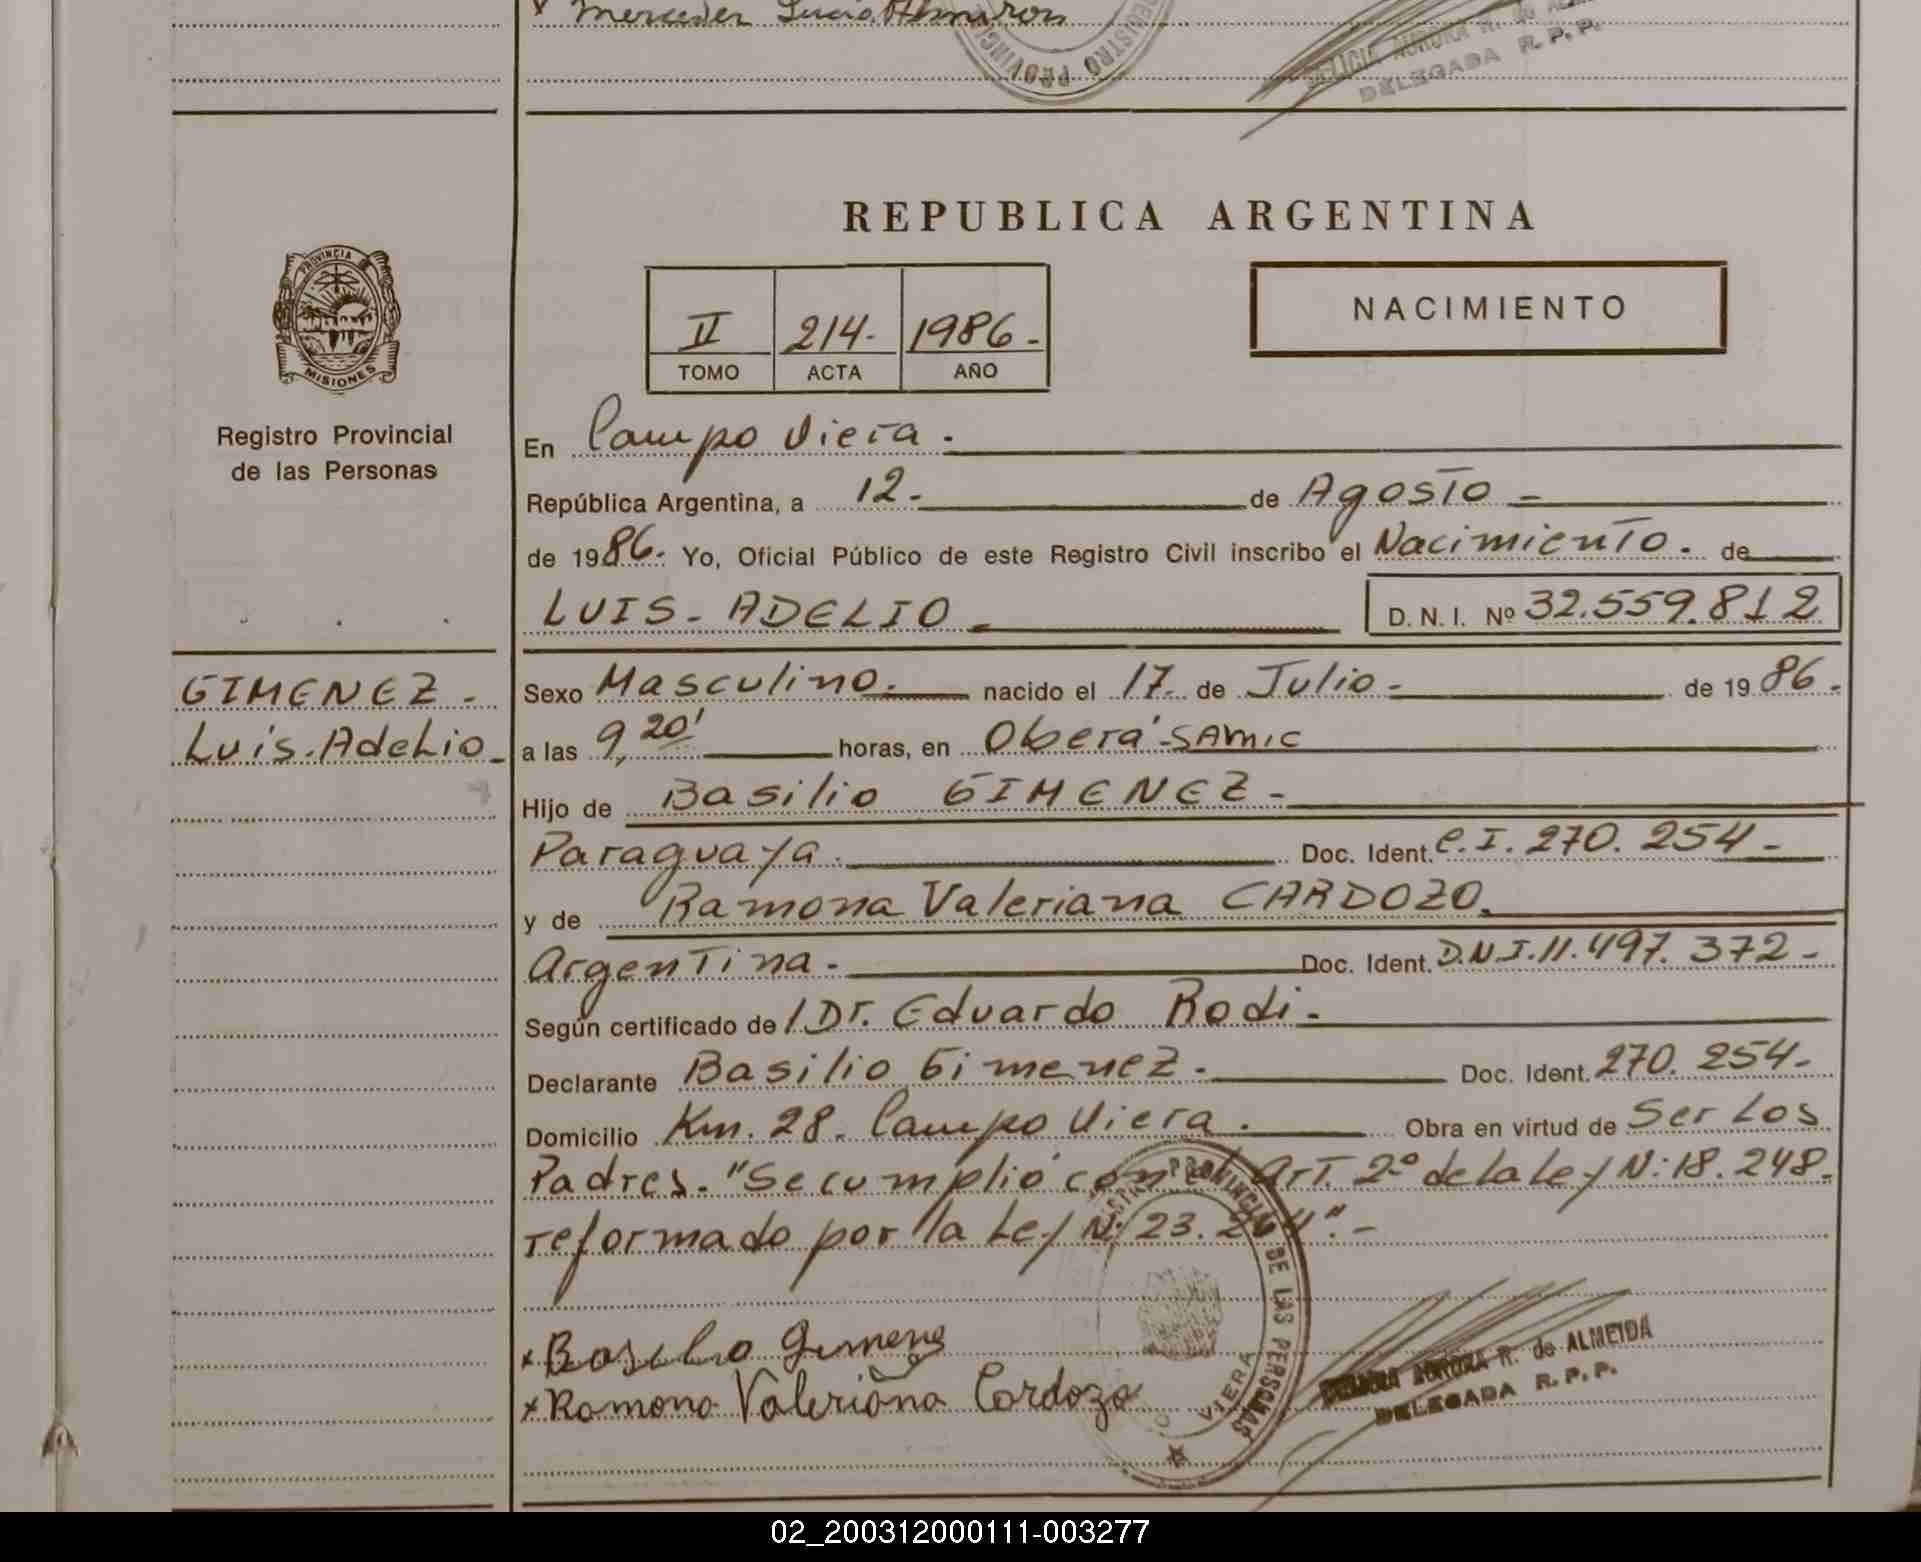 Mercedes Lucia Almaron
REGISTRO PROVINCIAL
R. de
DELEGADA R. P. P.
REPUBLICA ARGENTINA
PROVINCIA DE
MISIONES
Registro Provincial
de las Personas
II 214- 1986-
TOMO ACTA AÑO
NACIMIENTO
En Campo Viera.
República Argentina, a 12- de Agosto -
de 1986. Yo, Oficial Público de este Registro Civil inscribo el Nacimiento. de
LUIS- ADELIO - D. N. I. Nº 32.559.812
GIMENEZ -
Luis. Adelio -
Sexo Masculino. nacido el 17 de Julio - de 1986.
a las 9,20' horas, en Oberá-SAMIC
Hijo de Basilio GIMENEZ -
Paraguaya. Doc. Ident. C.I. 270. 254-
y de Ramona Valeriana CARDOZO.
Argentina. Doc. Ident. D.N.I. 11.497.372-
Según certificado de / Dr. Eduardo Rodi-
Declarante Basilio Gimenez. Doc. Ident. 270. 254-
Domicilio Km. 28. Campo Viera. Obra en virtud de Ser Los
Padres. "Se cumplió con el Art. 2º de la Ley N: 18.248-
reformado por la Ley N: 23.264".-
x Basilio Gimenez
x Ramona Valeriana Cardozo
REGISTRO PROVINCIAL DE LAS PERSONAS
VIERA
AURORA R. de ALMEIDA
DELEGADA R. P. P.
02_200312000111-003277